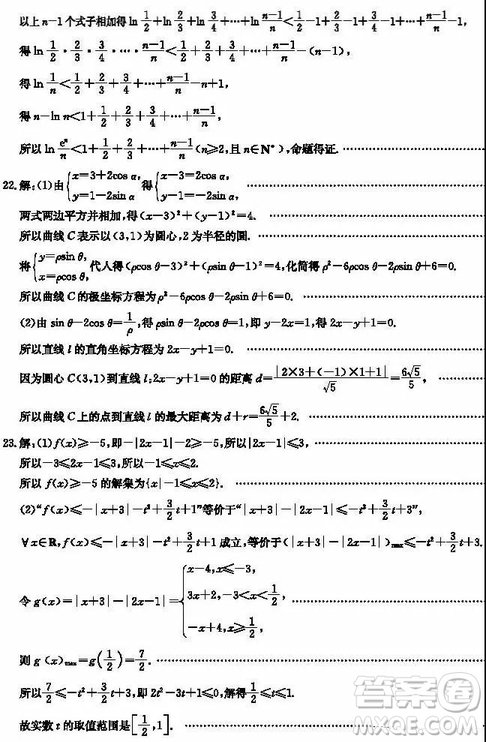 以上n-1个式子相加得ln 1/2+ln 2/3+ln 3/4+…+ln (n-1)/n<1/2-1+2/3-1+…+(n-1)/n-1,
得ln 1/2·2/3·3/4·…·(n-1)/n<1/2+2/3+3/4+…+(n-1)/n-n+1,
得ln 1/n<1/2+2/3+3/4+…+(n-1)/n-n+1,
得n-ln n<1+1/2+2/3+3/4+…+(n-1)/n,
所以ln eⁿ/n<1+1/2+2/3+…+(n-1)/n(n≥2,且n∈N*),命题得证.
22.解:(1)由{x=3+2cos α, y=1-2sin α 得{x-3=2cos α, y-1=-2sin α,
两式两边平方并相加,得(x-3)²+(y-1)²=4.
所以曲线C表示以(3,1)为圆心,2为半径的圆.
将{y=ρsin θ, x=ρcos θ 代入得(ρcos θ-3)²+(ρsin θ-1)²=4,化简得ρ²-6ρcos θ-2ρsin θ+6=0.
所以曲线C的极坐标方程为ρ²-6ρcos θ-2ρsin θ+6=0.
(2)由sin θ-2cos θ=1/ρ,得ρsin θ-2ρcos θ=1,即y-2x=1,得
所以直线l的直角坐标方程为2x-y+1=0.
因为圆心C(3,1)到直线l:2x-y+1=0的距离d=|2×3+(-1)×1+1|/√5=6√5/5,
所以曲线C上的点到直线l的最大距离为d+r=6√5/5+2.
23.解:(1)f(x)≥-5,即-|2x-1|-2≥-5,所以|2x-1|≤3,
所以-3≤2x-1≤3,所以-1≤x≤2.
所以f(x)≥-5的解集为{x|-1≤x≤2}.
(2)“f(x)≤-|x+3|-t²+3/2t+1”等价于“|x+3|-|2x-1|≤-t²+3/2t+3”,
∀x∈R,f(x)≤-|x+3|-t²+3/2t+1成立,等价于(|x+3|-|2x-1|)max≤-t²+3/2t+3.
令g(x)=|x+3|-|2x-1|={x-4,x≤-3, 3x+2,-3<x<1/2, -x+4,x≥1/2,
则g(x)max=g(1/2)=7/2.
所以7/2≤-t²+3/2t+3,即2t²-3t+1≤0,解得1/2≤t≤1.
故实数t的取值范围是[1/2,1].
答案圈